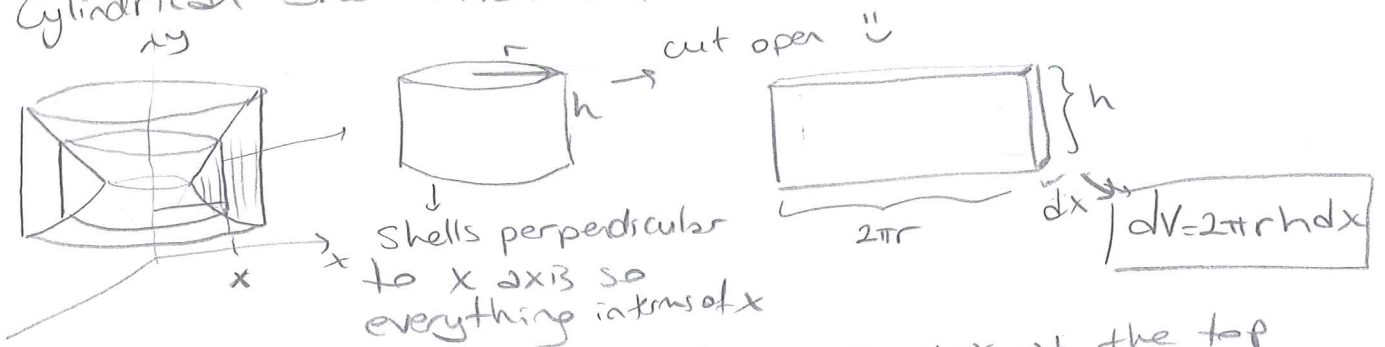 Cylindrical
y
r
→ cut open
h
} h
dx
dV=2πrhdx
2πr
x
x
shells perpendicular
to x axis so
everything in terms of x
at the top